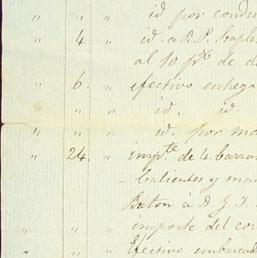 " " " id. por condu
" 4 " id. a R.P. Stapl
al 10 p% de d
" 6. " efectivo entrega
" " " id. id.
" " " id. por ma
" 24. " impte de 4 barra
calientes y ma
Biton á D. G. J.
" " " importe del co
" " " Efectivo embarcad